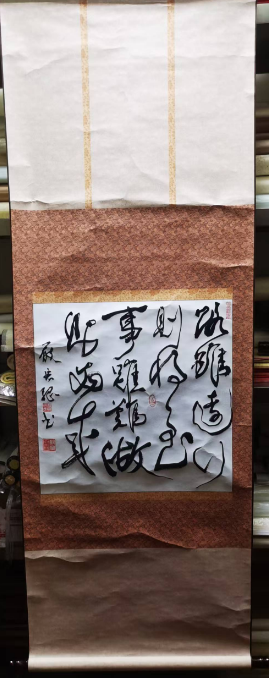 路雖遠行
則將至
事雖難做
則必成
书